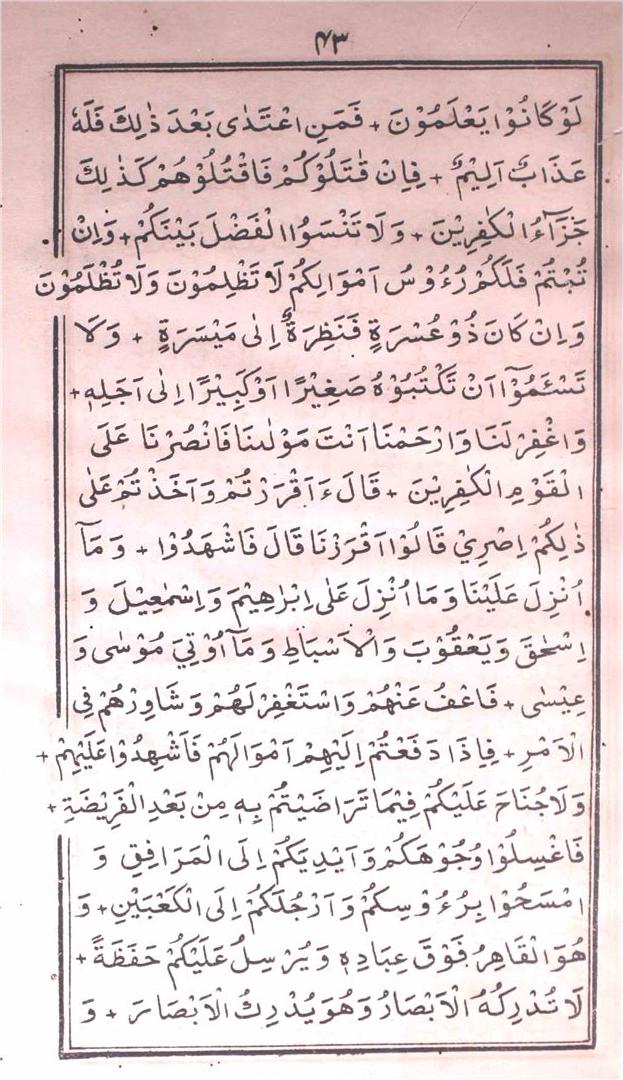 ۴۳
لَوْ كَانُوْا يَعْلَمُوْنَ + فَمَنِ اعْتَدٰى بَعْدَ ذٰلِكَ فَلَهٗ
عَذَابٌ اَلِيْمٌ + فَاِنْ قٰتَلُوْكُمْ فَاقْتُلُوْهُمْ كَذٰلِكَ
جَزَآءُ الْكٰفِرِيْنَ + وَلَا تَنْسَوُا الْفَضْلَ بَيْنَكُمْ + وَاِنْ
تُبْتُمْ فَلَكُمْ رُءُوْسُ اَمْوَالِكُمْ لَا تَظْلِمُوْنَ وَلَا تُظْلَمُوْنَ
وَاِنْ كَانَ ذُوْ عُسْرَةٍ فَنَظِرَةٌ اِلٰى مَيْسَرَةٍ + وَلَا
تَسْئَمُوْٓا اَنْ تَكْتُبُوْهُ صَغِيْرًا اَوْ كَبِيْرًا اِلٰى اَجَلِهٖ +
وَاغْفِرْ لَنَا وَارْحَمْنَا اَنْتَ مَوْلٰىنَا فَانْصُرْنَا عَلَى
الْقَوْمِ الْكٰفِرِيْنَ + قَالَ ءَاَقْرَرْتُمْ وَاَخَذْتُمْ عَلٰى
ذٰلِكُمْ اِصْرِيْ قَالُوْا اَقْرَرْنَا قَالَ فَاشْهَدُوْا + وَمَآ
اُنْزِلَ عَلَيْنَا وَمَا اُنْزِلَ عَلٰى اِبْرٰهِيْمَ وَاِسْمٰعِيْلَ وَ
اِسْحٰقَ وَيَعْقُوْبَ وَالْاَسْبَاطِ وَمَآ اُوْتِيَ مُوْسٰى وَ
عِيْسٰى + فَاعْفُ عَنْهُمْ وَاسْتَغْفِرْ لَهُمْ وَشَاوِرْهُمْ فِى
الْاَمْرِ + فَاِذَا دَفَعْتُمْ اِلَيْهِمْ اَمْوَالَهُمْ فَاَشْهِدُوْا عَلَيْهِمْ +
وَلَا جُنَاحَ عَلَيْكُمْ فِيْمَا تَرَاضَيْتُمْ بِهٖ مِنْ بَعْدِ الْفَرِيْضَةِ +
فَاغْسِلُوْا وُجُوْهَكُمْ وَاَيْدِيَكُمْ اِلَى الْمَرَافِقِ وَ
امْسَحُوْا بِرُءُوْسِكُمْ وَاَرْجُلَكُمْ اِلَى الْكَعْبَيْنِ + وَ
هُوَ الْقَاهِرُ فَوْقَ عِبَادِهٖ وَيُرْسِلُ عَلَيْكُمْ حَفَظَةً +
لَا تُدْرِكُهُ الْاَبْصَارُ وَهُوَ يُدْرِكُ الْاَبْصَارَ + وَ